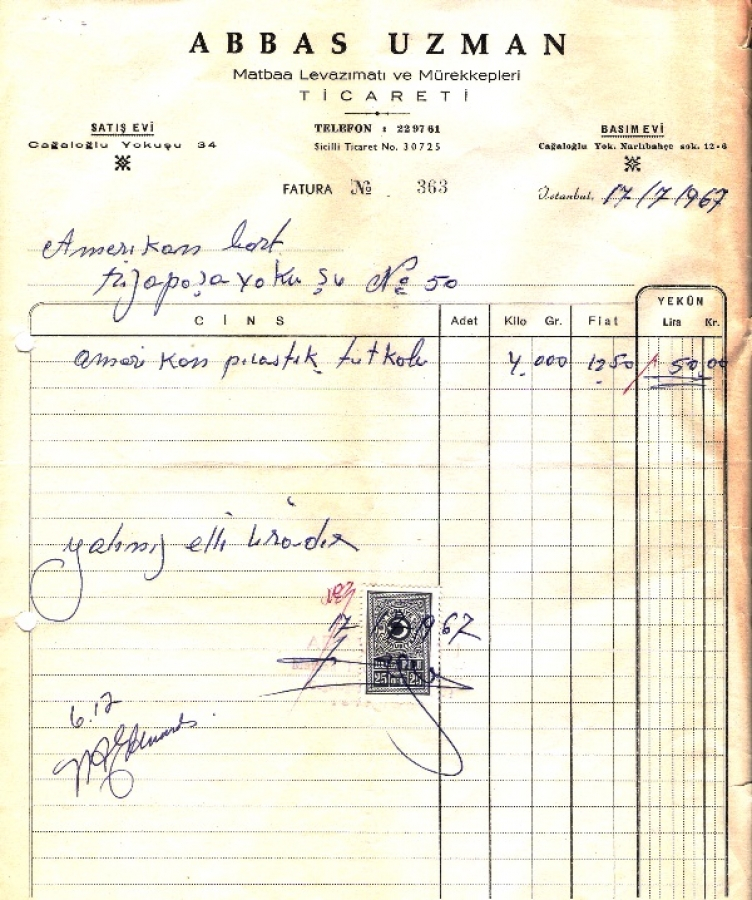 ABBAS UZMAN
Matbaa Levazımatı ve Mürekkepleri
TİCARETİ
SATIŞ EVİ
Cağaloğlu Yokuşu 34
TELEFON : 229761
Sicilli Ticaret No. 30725
BASIMEVİ
Cağaloğlu Yok. Narlıbahçe sok. 12-6
FATURA No. 363
İstanbul, 17/7/1967
Amerikan bort
rızapaşa yokuşu No 50
CİNS Adet Kilo Gr. Fiat YEKÛN Lira Kr.
amerikan pılastik tutkalı 4.000 1250 50.00
yalınız elli liradır
17 1967
25 25
6.17